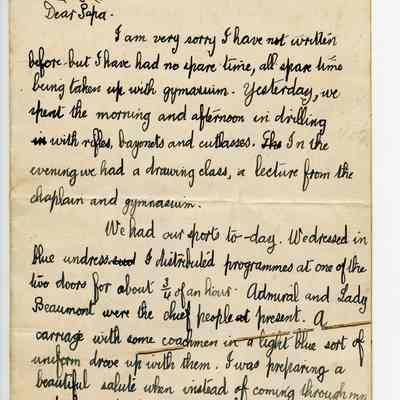 Dear Papa.
I am very sorry I have not written
before but I have had no spare time, all spare time
being taken up with gymnasium. Yesterday, we
spent the morning and afternoon in drilling
in with rifles, bayonets and cutlasses. The In the
evening we had a drawing class, a lecture from the
chaplain and gymnasium.
We had our sports to-day. We dressed in
blue undress. I distributed programmes at one of the
two doors for about 3/4 of an hour. Admiral and Lady
Beaumont were the chief people at present. A
carriage with some coachmen in a light blue sort of
uniform drove up with them. I was preparing a
beautiful salute when instead of coming through my